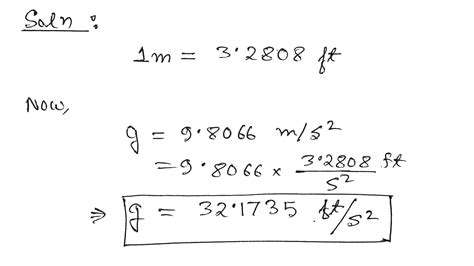 Soln :
1m = 3.2808 ft
Now,
g = 9.8066 m/s²
= 9.8066 × 3.2808 ft / s²
⇒ g = 32.1735 ft/s²